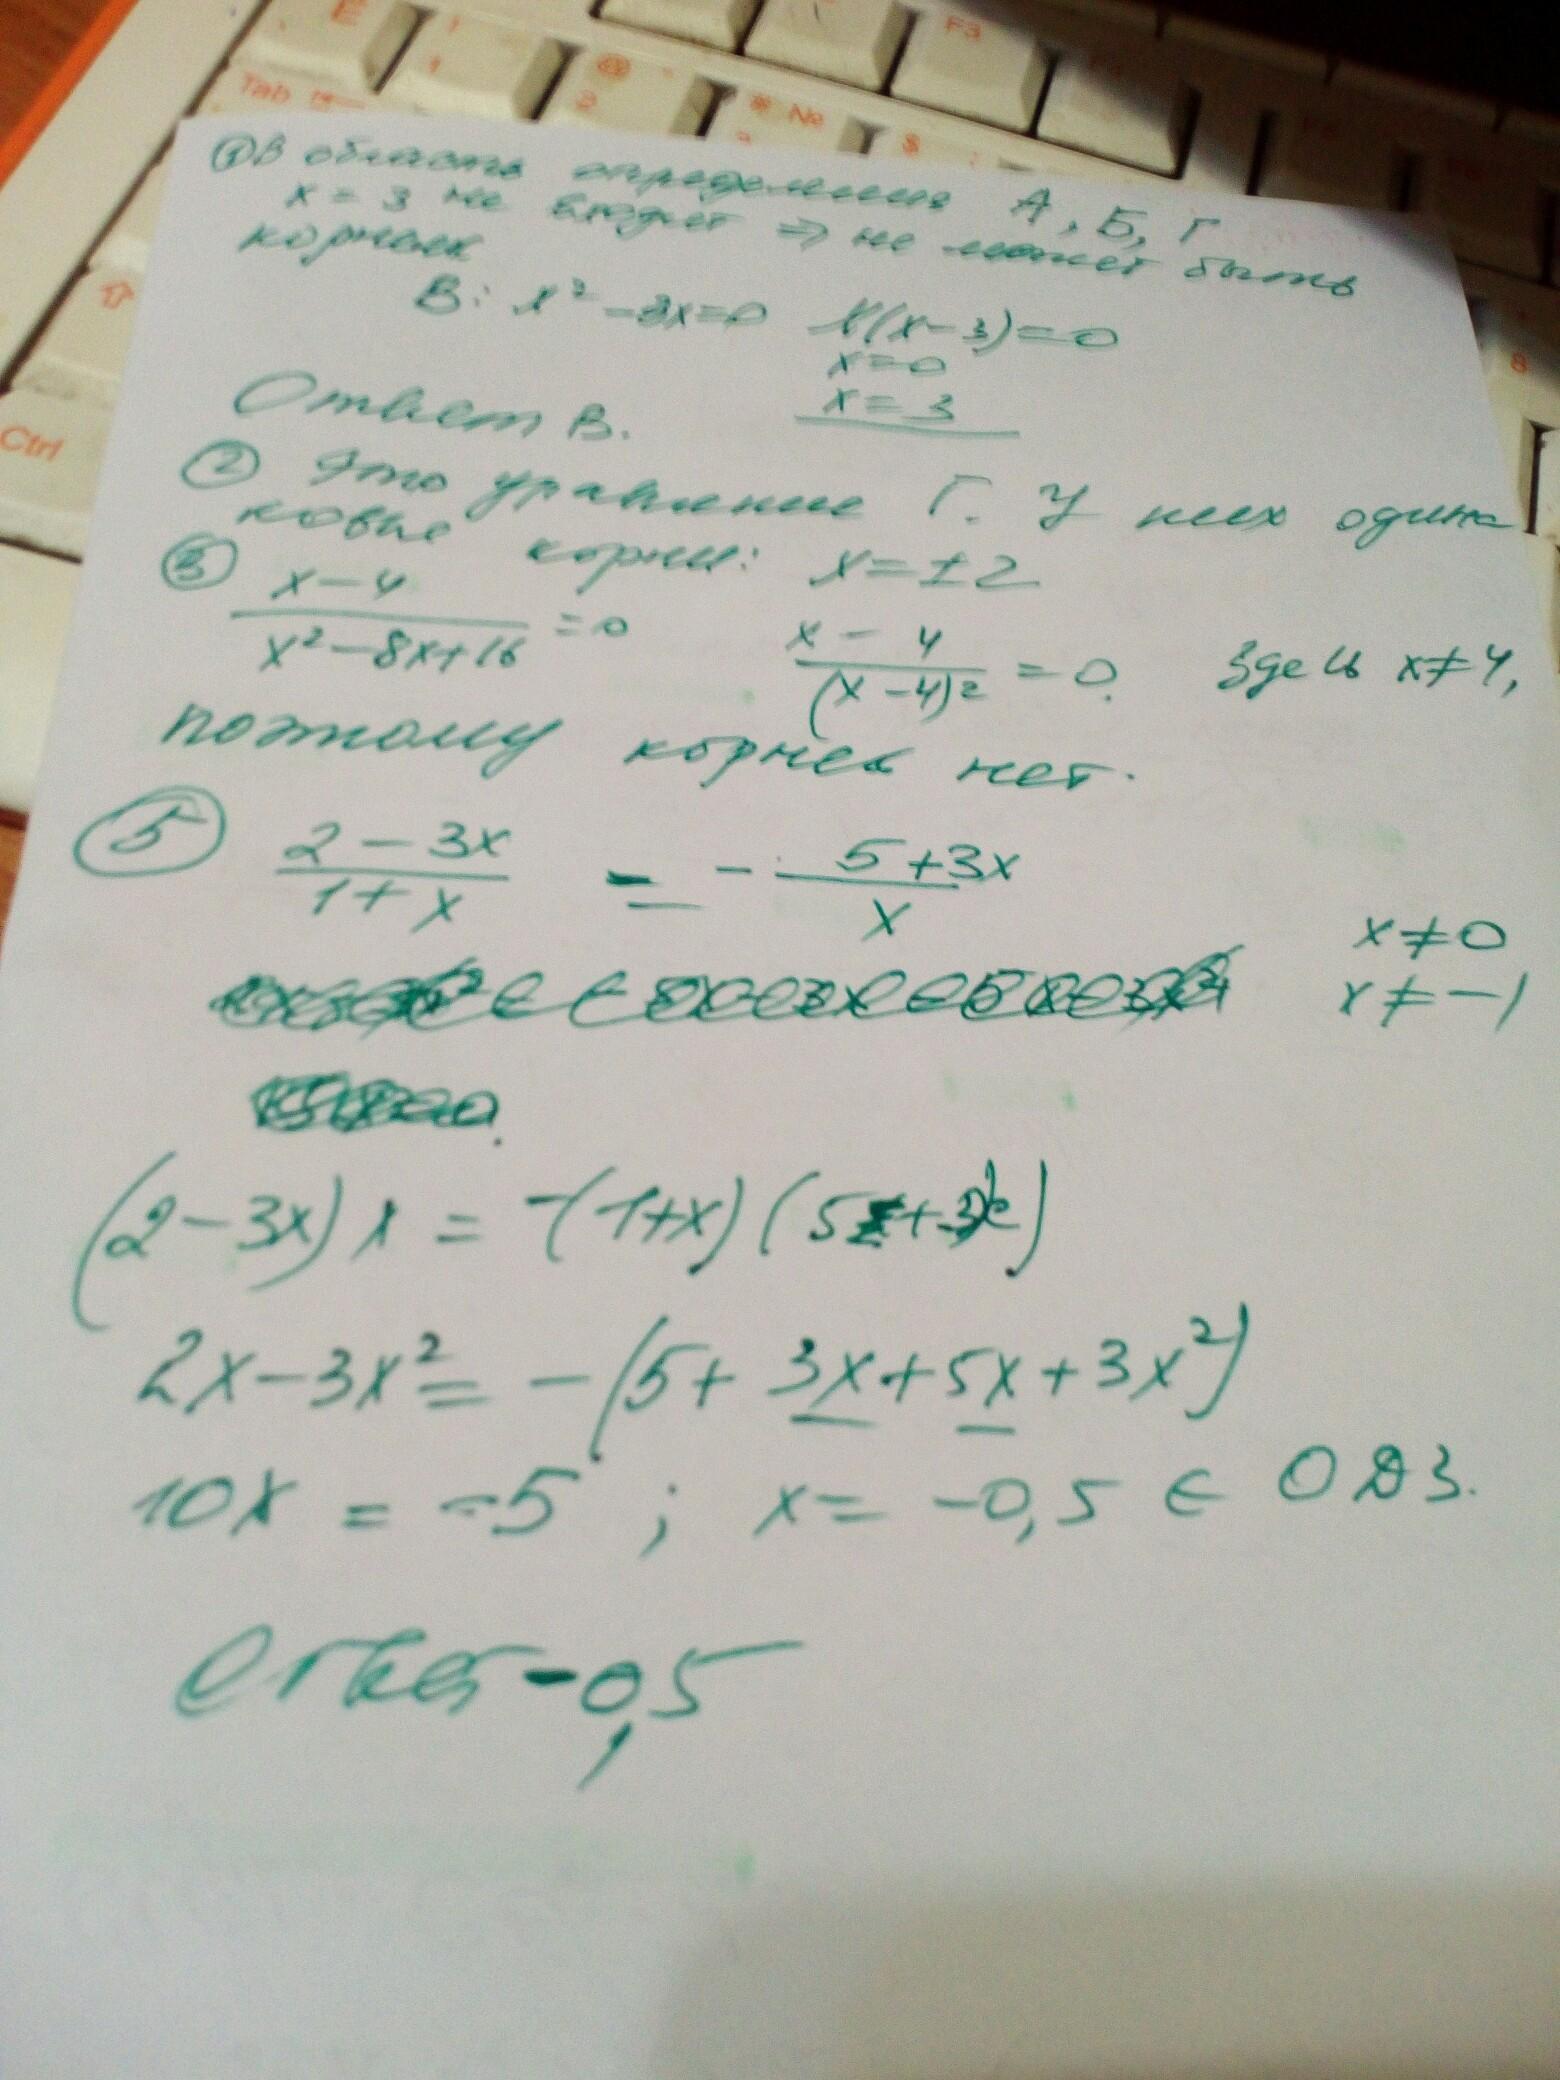 E
F3
Tab
@
2
* №
$
;
8
Ctrl
① В область определения А, Б, Г
x = 3 не входит ⇒ не может быть
корнем
В: x² - 3x = 0 x(x - 3) = 0
x = 0
x = 3
Ответ В.
② Это уравнение Г. У них одина
ковые корни: x = ±2
③ x - 4 / x² - 8x + 16 = 0 x - 4 / (x - 4)² = 0. Здесь x ≠ 4,
поэтому корней нет.
⑤ 2 - 3x / 1 + x = - 5 + 3x / x
x ≠ 0
x ≠ -1
(2 - 3x) x = -(1 + x) (5 + 3x)
2x - 3x² = -(5 + 3x + 5x + 3x²)
10x = -5 ; x = -0,5 ∈ ОДЗ.
Ответ -0,5